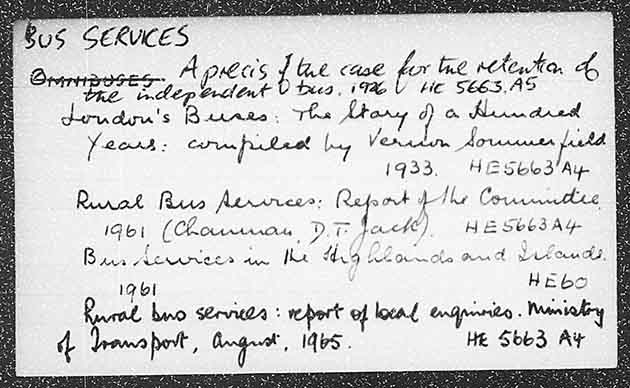 BUS SERVICES
OMNIBUSES. A precis of the case for the retention of
the independent bus. 1926 HE 5663.A5
London's Buses: The Story of a Hundred
Years: compiled by Vernon Sommerfield
1933. HE5663 A4
Rural Bus Services: Report of the Committee.
1961 (Chairman, D.T. Jack). HE5663A4
Bus Services in the Highlands and Islands.
1961 HE60
Rural bus services: report of local enquiries. Ministry
of Transport, August, 1965. HE 5663 A4